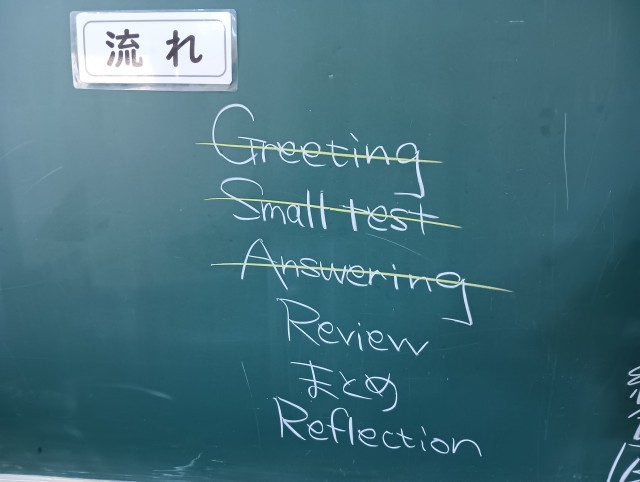 流れ
Greeting
Small test
Answering
Review
まとめ
Reflection